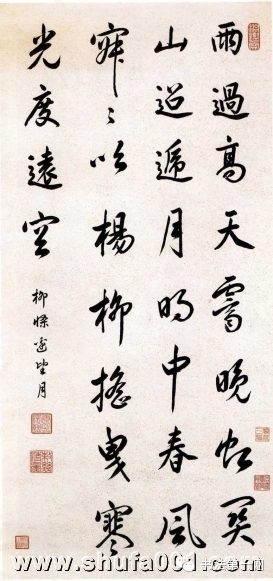 雨過高天霽晚虹關
山迢遞月明中春風
寂〻吹楊柳搖曳寒
光度遠空
柳條邊望月
www.shufa001.com